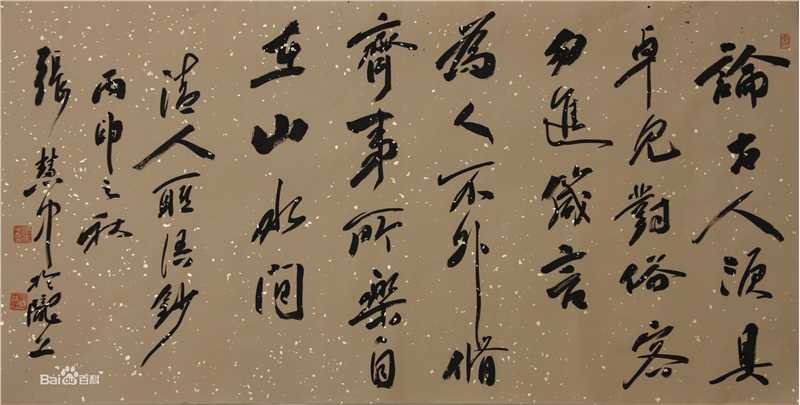 論古人須具
卓見對俗客
勿進箴言
為人不外脩
齊事所樂自
在山水間
清人聯語鈔
丙申之秋
張慧中於隴上
Bai百科